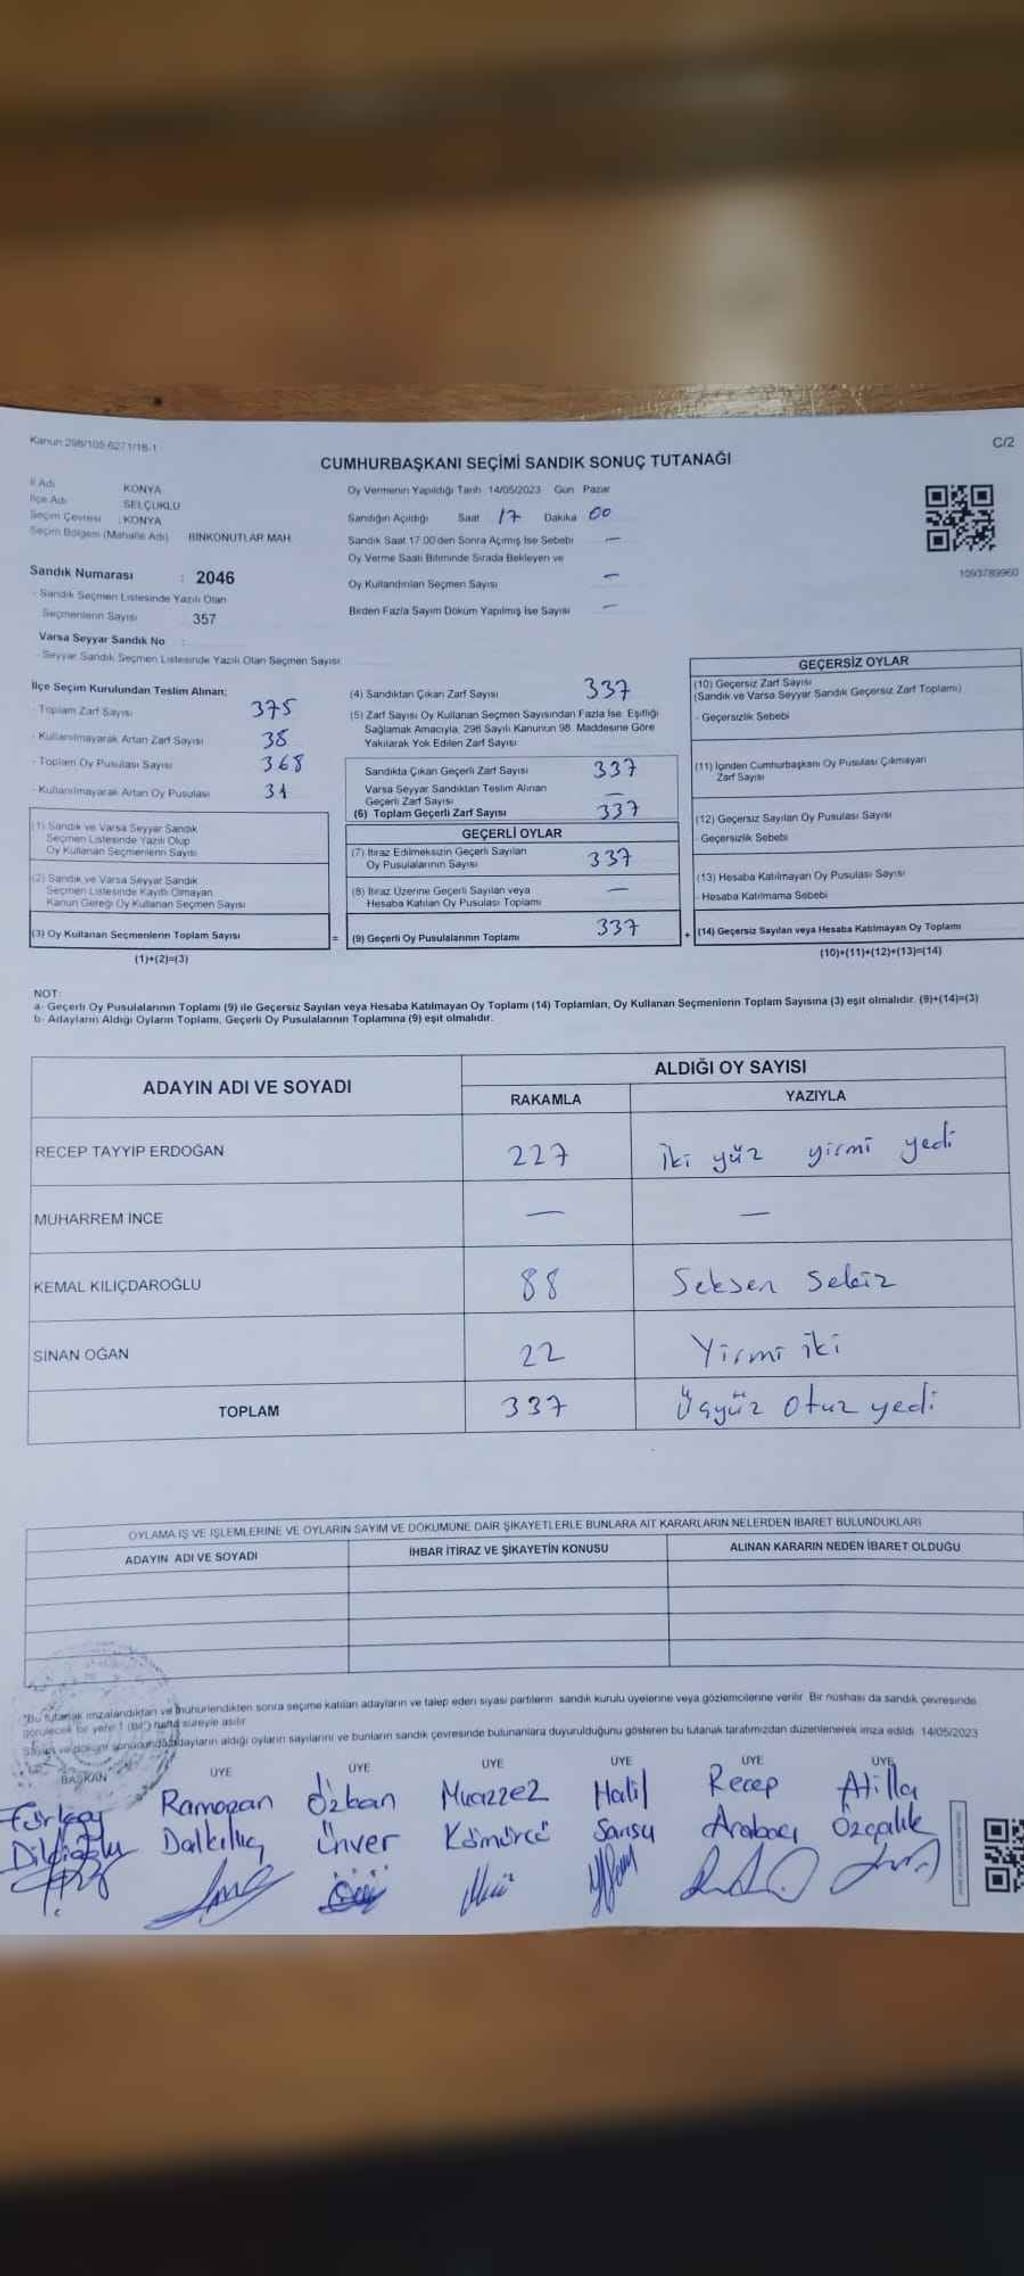 Kanun 298/105-6271/18-1
C/2
CUMHURBAŞKANI SEÇİMİ SANDIK SONUÇ TUTANAĞI
İl Adı KONYA
İlçe Adı SELÇUKLU
Seçim Çevresi : KONYA
Seçim Bölgesi (Mahalle Adı) BİNKONUTLAR MAH.
Sandık Numarası : 2046
- Sandık Seçmen Listesinde Yazılı Olan
Seçmenlerin Sayısı 357
Varsa Seyyar Sandık No :
- Seyyar Sandık Seçmen Listesinde Yazılı Olan Seçmen Sayısı
Oy Vermenin Yapıldığı Tarih 14/05/2023 Gün Pazar
Sandığın Açıldığı Saat 17 Dakika 00
Sandık Saat 17.00'den Sonra Açmış İse Sebebi —
Oy Verme Saati Bitiminde Sırada Bekleyen ve
Oy Kullandırılan Seçmen Sayısı —
Birden Fazla Sayım Döküm Yapılmış İse Sayısı —
1093789960
İlçe Seçim Kurulundan Teslim Alınan;
- Toplam Zarf Sayısı 375
- Kullanılmayarak Artan Zarf Sayısı 38
- Toplam Oy Pusulası Sayısı 368
- Kullanılmayarak Artan Oy Pusulası 31
(1) Sandık ve Varsa Seyyar Sandık
Seçmen Listesinde Yazılı Olup
Oy Kullanan Seçmenlerin Sayısı
(2) Sandık ve Varsa Seyyar Sandık
Seçmen Listesinde Kayıtlı Olmayan
Kanun Gereği Oy Kullanan Seçmen Sayısı
(3) Oy Kullanan Seçmenlerin Toplam Sayısı
(1)+(2)=(3)
(4) Sandıktan Çıkan Zarf Sayısı 337
(5) Zarf Sayısı Oy Kullanan Seçmen Sayısından Fazla İse; Eşitliği
Sağlamak Amacıyla, 298 Sayılı Kanunun 98. Maddesine Göre
Yakılarak Yok Edilen Zarf Sayısı
Sandıkta Çıkan Geçerli Zarf Sayısı 337
Varsa Seyyar Sandıktan Teslim Alınan
Geçerli Zarf Sayısı —
(6) Toplam Geçerli Zarf Sayısı 337
GEÇERLİ OYLAR
(7) İtiraz Edilmeksizin Geçerli Sayılan
Oy Pusulalarının Sayısı 337
(8) İtiraz Üzerine Geçerli Sayılan veya
Hesaba Katılan Oy Pusulası Toplamı —
= (9) Geçerli Oy Pusulalarının Toplamı 337
GEÇERSİZ OYLAR
(10) Geçersiz Zarf Sayısı
(Sandık ve Varsa Seyyar Sandık Geçersiz Zarf Toplamı)
- Geçersizlik Sebebi
(11) İçinden Cumhurbaşkanı Oy Pusulası Çıkmayan
Zarf Sayısı
(12) Geçersiz Sayılan Oy Pusulası Sayısı
- Geçersizlik Sebebi
(13) Hesaba Katılmayan Oy Pusulası Sayısı
- Hesaba Katılmama Sebebi
+ (14) Geçersiz Sayılan veya Hesaba Katılmayan Oy Toplamı
(10)+(11)+(12)+(13)=(14)
NOT:
a- Geçerli Oy Pusulalarının Toplamı (9) ile Geçersiz Sayılan veya Hesaba Katılmayan Oy Toplamı (14) Toplamları, Oy Kullanan Seçmenlerin Toplam Sayısına (3) eşit olmalıdır. (9)+(14)=(3)
b- Adayların Aldığı Oyların Toplamı, Geçerli Oy Pusulalarının Toplamına (9) eşit olmalıdır.
ADAYIN ADI VE SOYADI
ALDIĞI OY SAYISI
RAKAMLA YAZIYLA
RECEP TAYYİP ERDOĞAN 227 İki yüz yirmi yedi
MUHARREM İNCE — —
KEMAL KILIÇDAROĞLU 88 Seksen Sekiz
SİNAN OĞAN 22 Yirmi iki
TOPLAM 337 Üçyüz otuz yedi
OYLAMA İŞ VE İŞLEMLERİNE VE OYLARIN SAYIM VE DÖKÜMÜNE DAİR ŞİKAYETLERLE BUNLARA AİT KARARLARIN NELERDEN İBARET BULUNDUKLARI
ADAYIN ADI VE SOYADI İHBAR İTİRAZ VE ŞİKAYETİN KONUSU ALINAN KARARIN NEDEN İBARET OLDUĞU
*Bu tutanak imzalandıktan ve mühürlendikten sonra seçime katılan adayların ve talep eden siyasi partilerin sandık kurulu üyelerine veya gözlemcilerine verilir. Bir nüshası da sandık çevresinde
görülecek bir yere 1 (Bir) hafta süreyle asılır.
sonucunda adayların aldığı oyların sayılarını ve bunların sandık çevresinde bulunanlara duyurulduğunu gösteren bu tutanak tarafımızdan düzenlenerek imza edildi. 14/05/2023
BAŞKAN ÜYE ÜYE ÜYE ÜYE ÜYE ÜYE
Ramazan Özkan Muazzez Halil Recep Atilla
Dalkılıç Ünver Kömürcü Sarısu Arabacı Özçalık